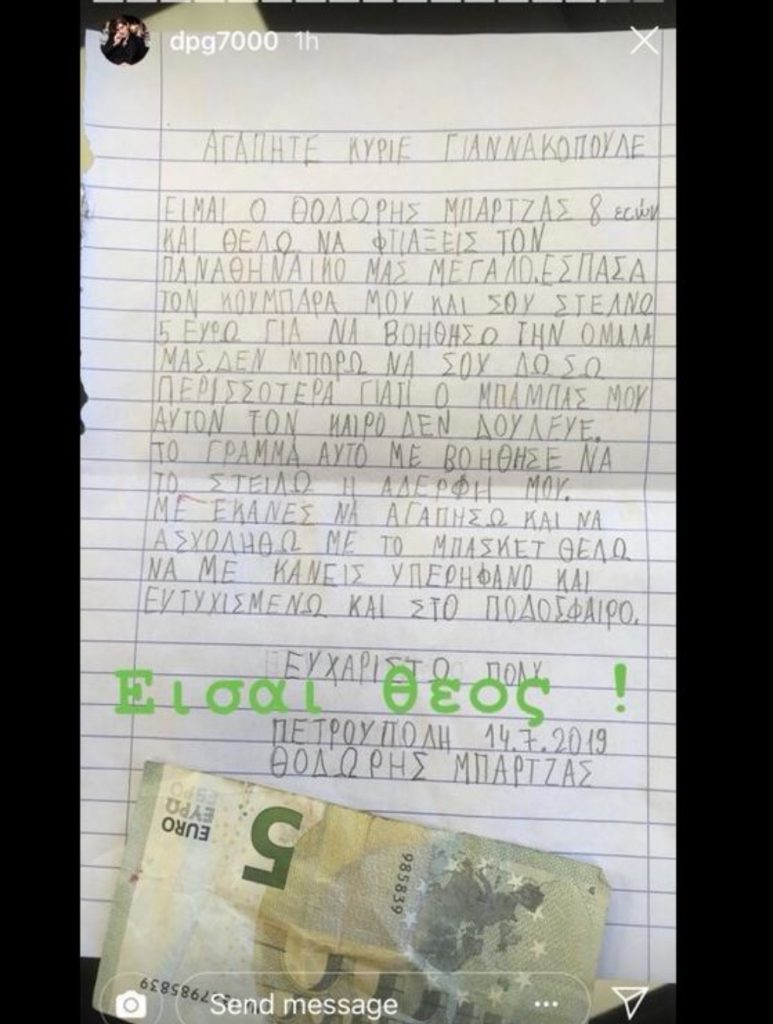 dpg7000 1h
ΑΓΑΠΗΤΕ ΚΥΡΙΕ ΓΙΑΝΝΑΚΟΠΟΥΛΕ
ΕΙΜΑΙ Ο ΘΟΔΩΡΗΣ ΜΠΑΡΤΖΑΣ 8 ετών
ΚΑΙ ΘΕΛΩ ΝΑ ΦΤΙΑΞΕΙΣ ΤΟΝ
ΠΑΝΑΘΗΝΑΙΚΟ ΜΑΣ ΜΕΓΑΛΟ.ΕΣΠΑΣΑ
ΤΟΝ ΚΟΥΜΠΑΡΑ ΜΟΥ ΚΑΙ ΣΟΥ ΣΤΕΛΝΩ
5 ΕΥΡΩ ΓΙΑ ΝΑ ΒΟΗΘΗΣΩ ΤΗΝ ΟΜΑΔΑ
ΜΑΣ.ΔΕΝ ΜΠΟΡΩ ΝΑ ΣΟΥ ΔΩΣΩ
ΠΕΡΙΣΣΟΤΕΡΑ ΓΙΑΤΙ Ο ΜΠΑΜΠΑΣ ΜΟΥ
ΑΥΤΟΝ ΤΟΝ ΚΑΙΡΟ ΔΕΝ ΔΟΥΛΕΥΕ.
ΤΟ ΓΡΑΜΜΑ ΑΥΤΟ ΜΕ ΒΟΗΘΗΣΕ ΝΑ
ΤΟ ΣΤΕΙΛΩ Η ΑΔΕΡΦΗ ΜΟΥ.
ΜΕ ΕΚΑΝΕΣ ΝΑ ΑΓΑΠΗΣΩ ΚΑΙ ΝΑ
ΑΣΧΟΛΗΘΩ ΜΕ ΤΟ ΜΠΑΣΚΕΤ ΘΕΛΩ
ΝΑ ΜΕ ΚΑΝΕΙΣ ΥΠΕΡΗΦΑΝΟ ΚΑΙ
ΕΥΤΥΧΙΣΜΕΝΩ ΚΑΙ ΣΤΟ ΠΟΔΟΣΦΑΙΡΟ.
ΕΥΧΑΡΙΣΤΩ ΠΟΛΥ
Εισαι θεος !
ΠΕΤΡΟΥΠΟΛΗ 14.7.2019
ΘΟΔΩΡΗΣ ΜΠΑΡΤΖΑΣ
EURO
ΕΥΡΩ
5
985839
Send message